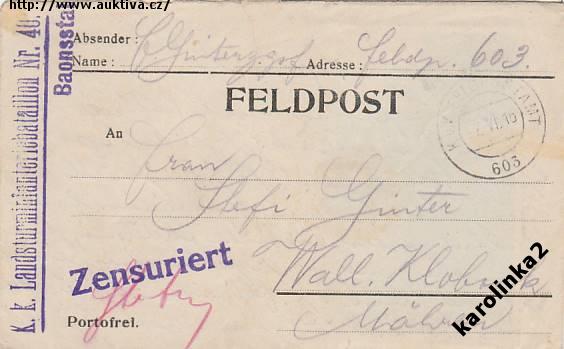 http://www.auktiva.cz/
K. k. Landsturminfanteriebataillon Nr. 40.
Baonssta
Absender:
Name: Ginter Adresse: Feldp. 603.
FELDPOST
AMT
VI. 16
603
An
Frau
Stefi Ginter
Wall. Klobouk
Mähren
Zensuriert
Portofrei.
karolinka2